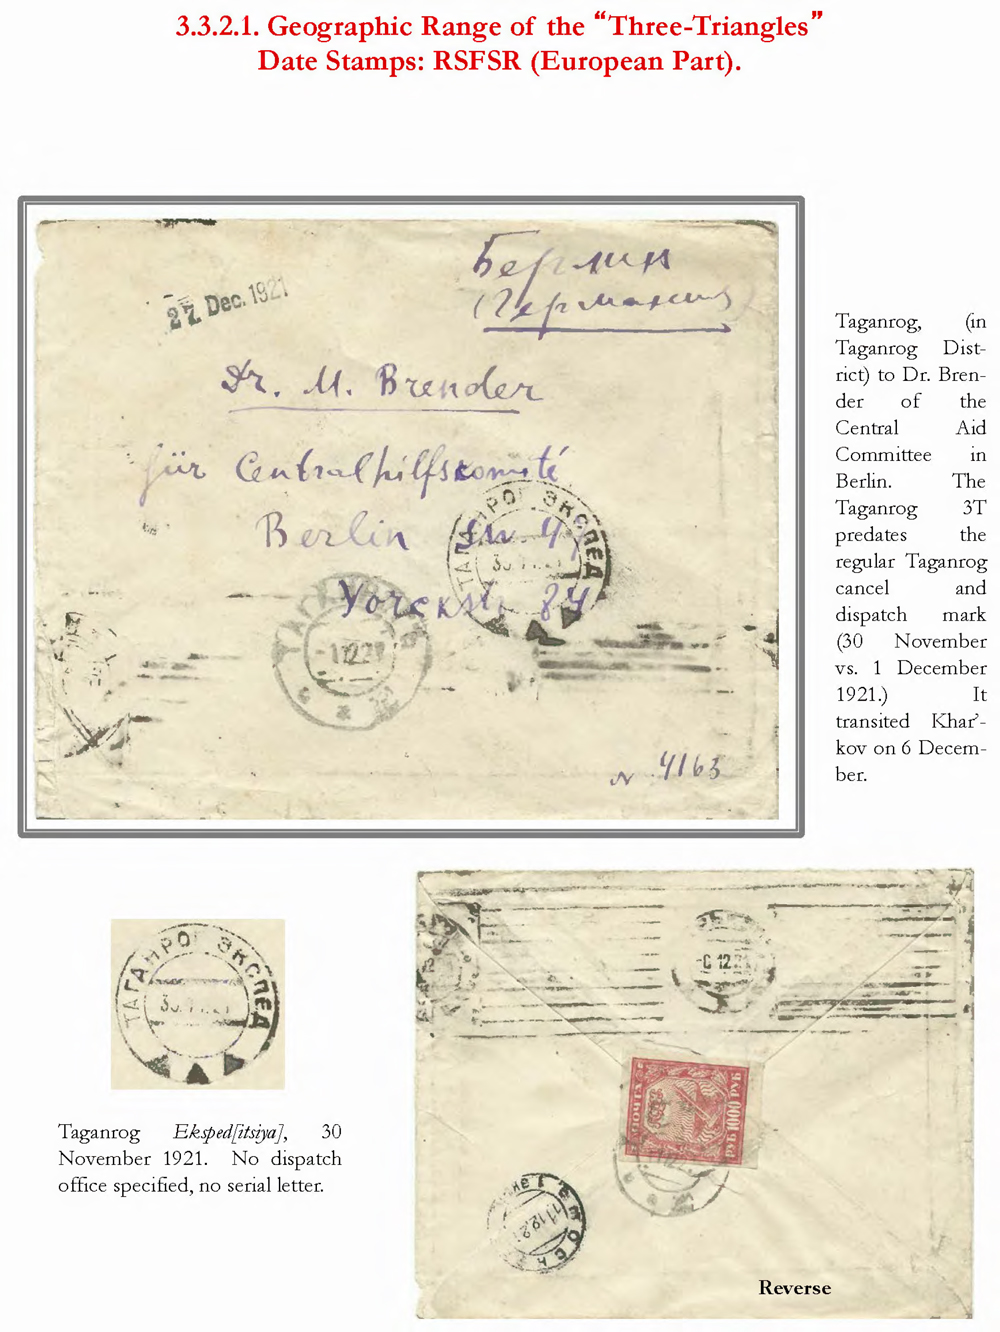 3.3.2.1. Geographic Range of the “Three-Triangles”
Date Stamps: RSFSR (European Part).
27 Dec. 1921
Берлин
(Германия)
Dr. M. Brender
für Centralhilfskomité
Berlin
84
ТАГАНРОГ ЭКСПЕД
-1 12.21
N 4163
Taganrog, (in
Taganrog Dist-
rict) to Dr. Bren-
der of the
Central Aid
Committee in
Berlin. The
Taganrog 3T
predates the
regular Taganrog
cancel and
dispatch mark
(30 November
vs. 1 December
1921.) It
transited Khar’-
kov on 6 Decem-
ber.
ТАГАНРОГ ЭКСПЕД
Taganrog Eksped[itsiya], 30
November 1921. No dispatch
office specified, no serial letter.
-6 12 21
ПОЧТА
РУБ 1000 РУБ
МОСК
Reverse